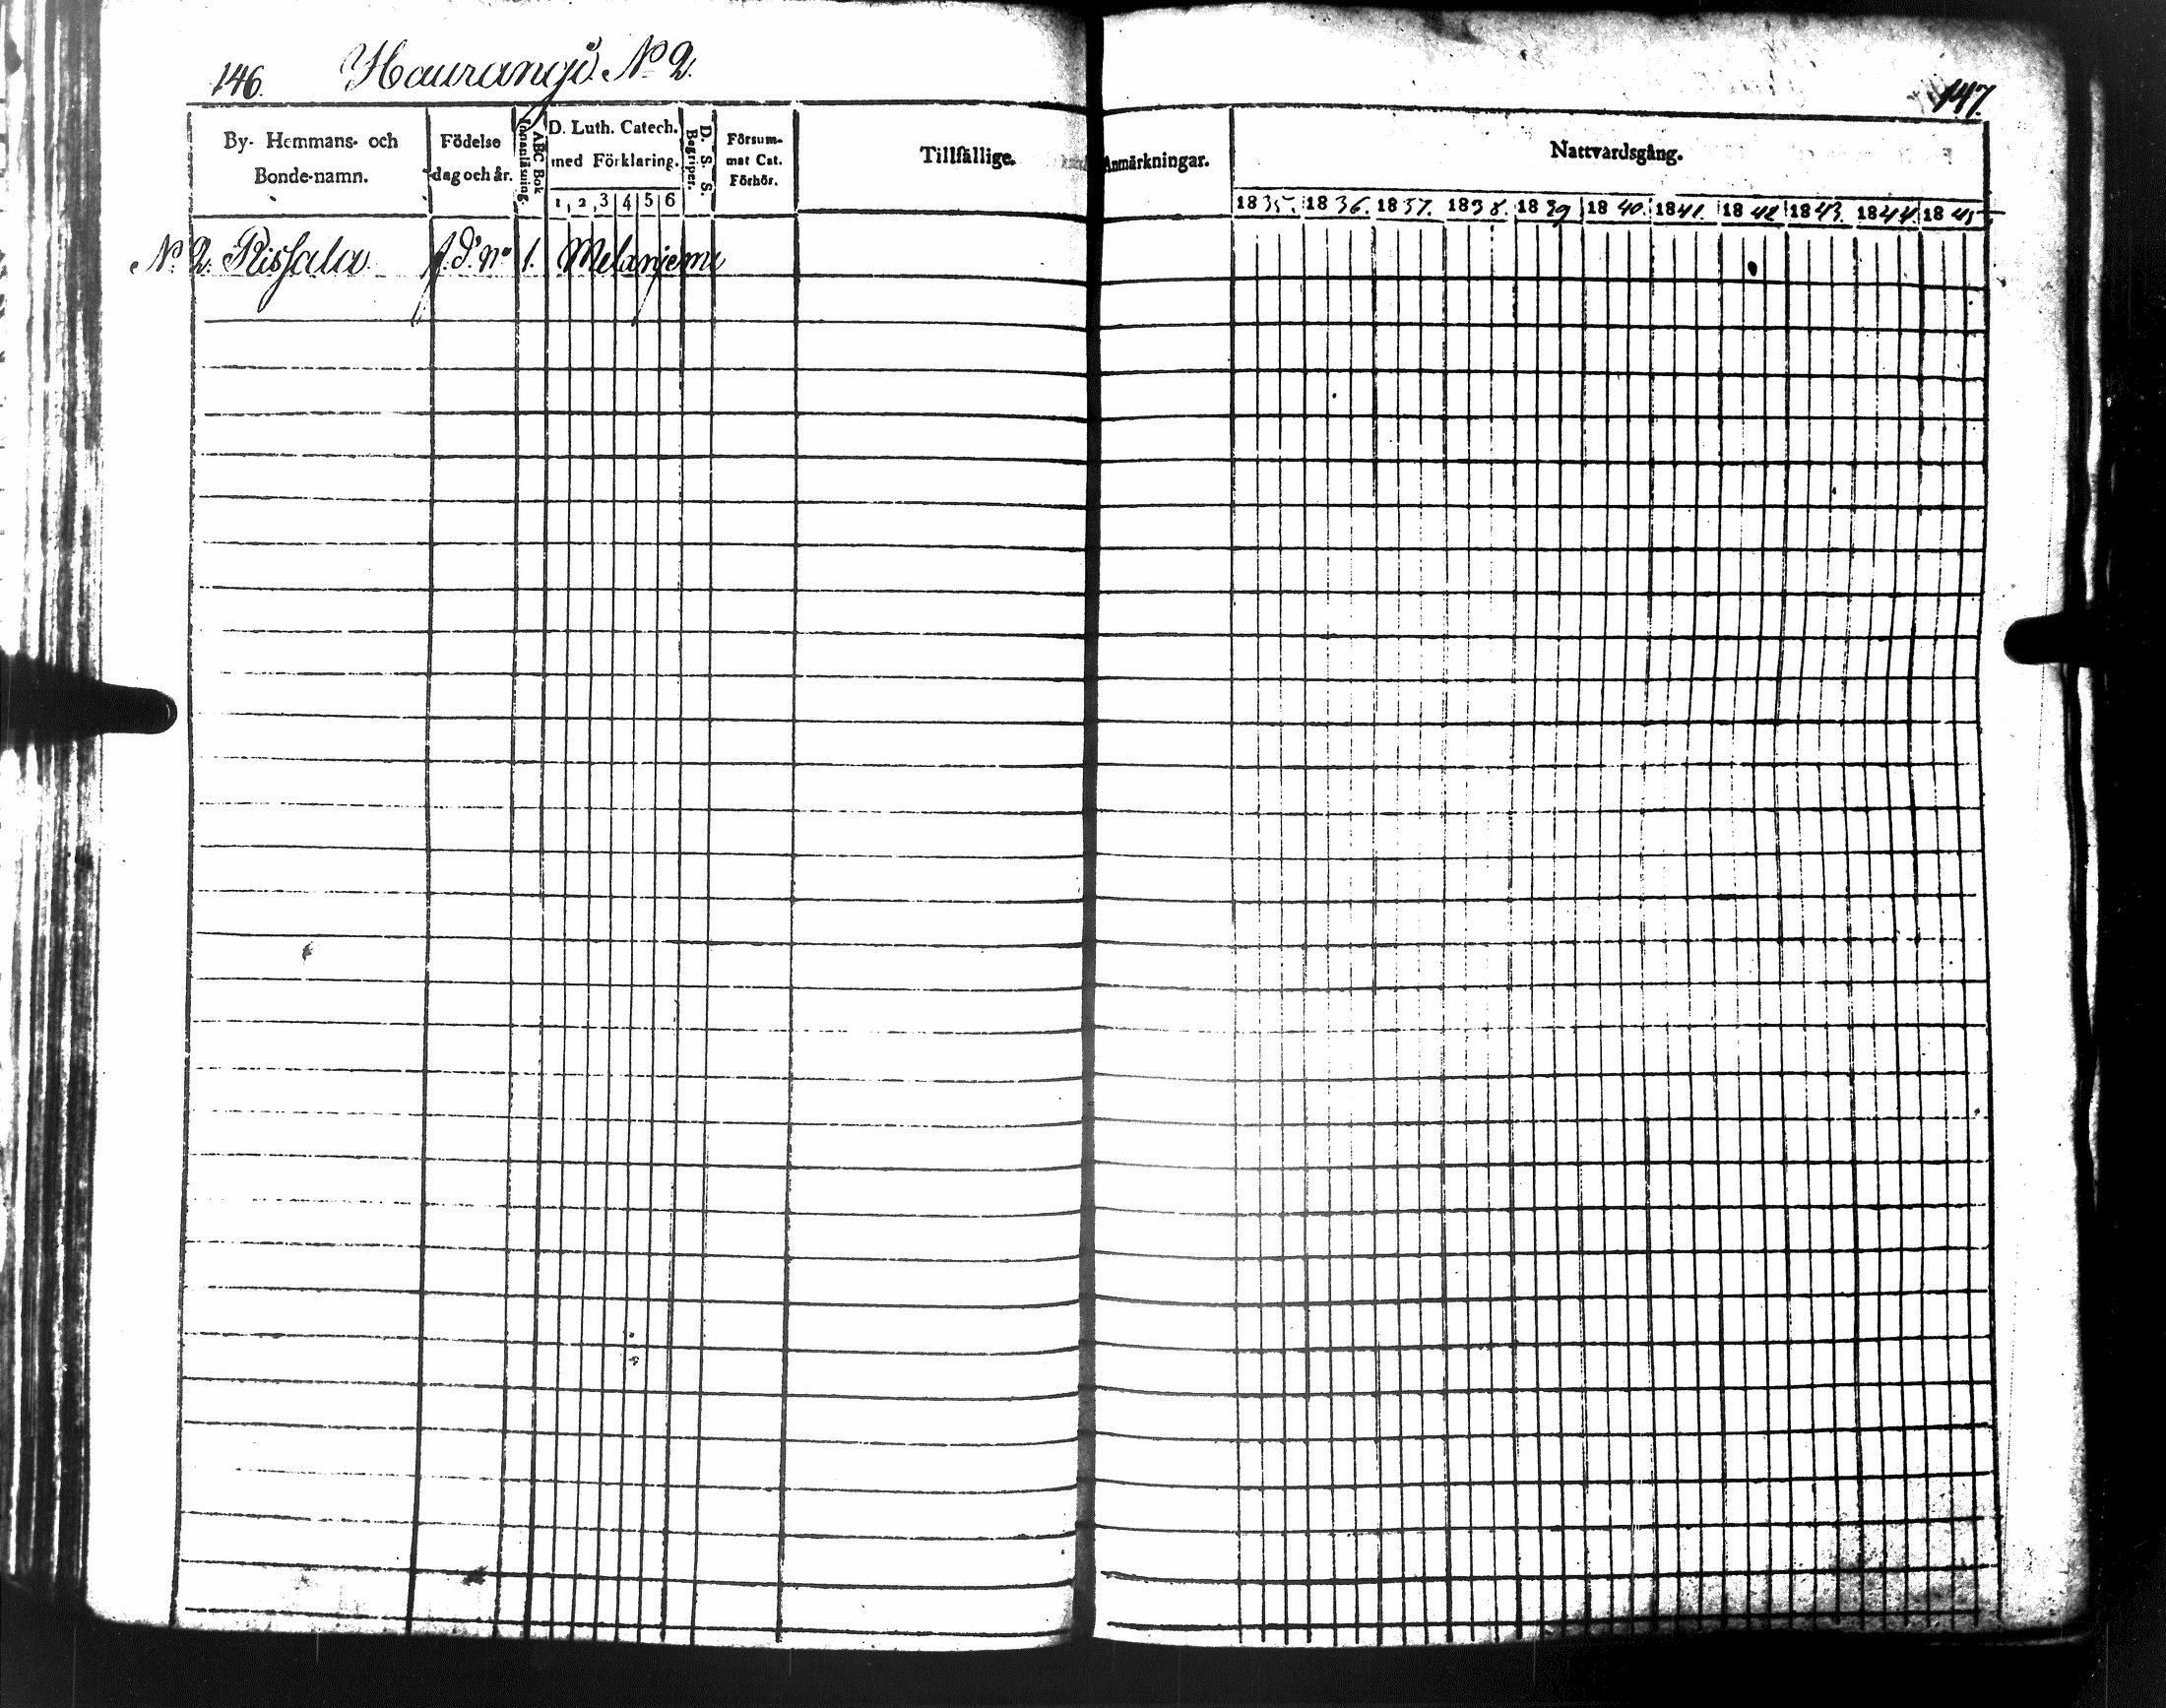 146. Haurangi. No 2.
147.
By- Hemmans- och Bonde-namn.
Födelse dag och år.
Innanläsning.
ABC Bok
D. Luth. Catech. med Förklaring.
1 2 3 4 5 6
D. S. S. Begriper.
Försum- mat Cat. Förhör.
Tillfällige
Anmärkningar.
Nattvardsgång.
1835. 1836. 1837. 1838. 1839 1840. 1841. 1842 1843. 1844. 1845
No 2. Rissala No 1.